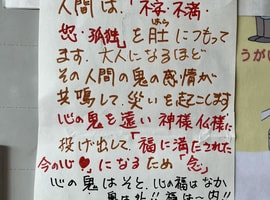 人間は、「不安・不満・
怒・孤独を肚につもって
ます。大人になるほど
その人間の鬼の感情が
共鳴して、災いを起こします
心の鬼を遠い神様仏様に
投げ出して「福に満たされた
今の心♥」になるため「念」
心の鬼はそと、心の福はなか
鬼は外!! 福は〜内!!
うがい